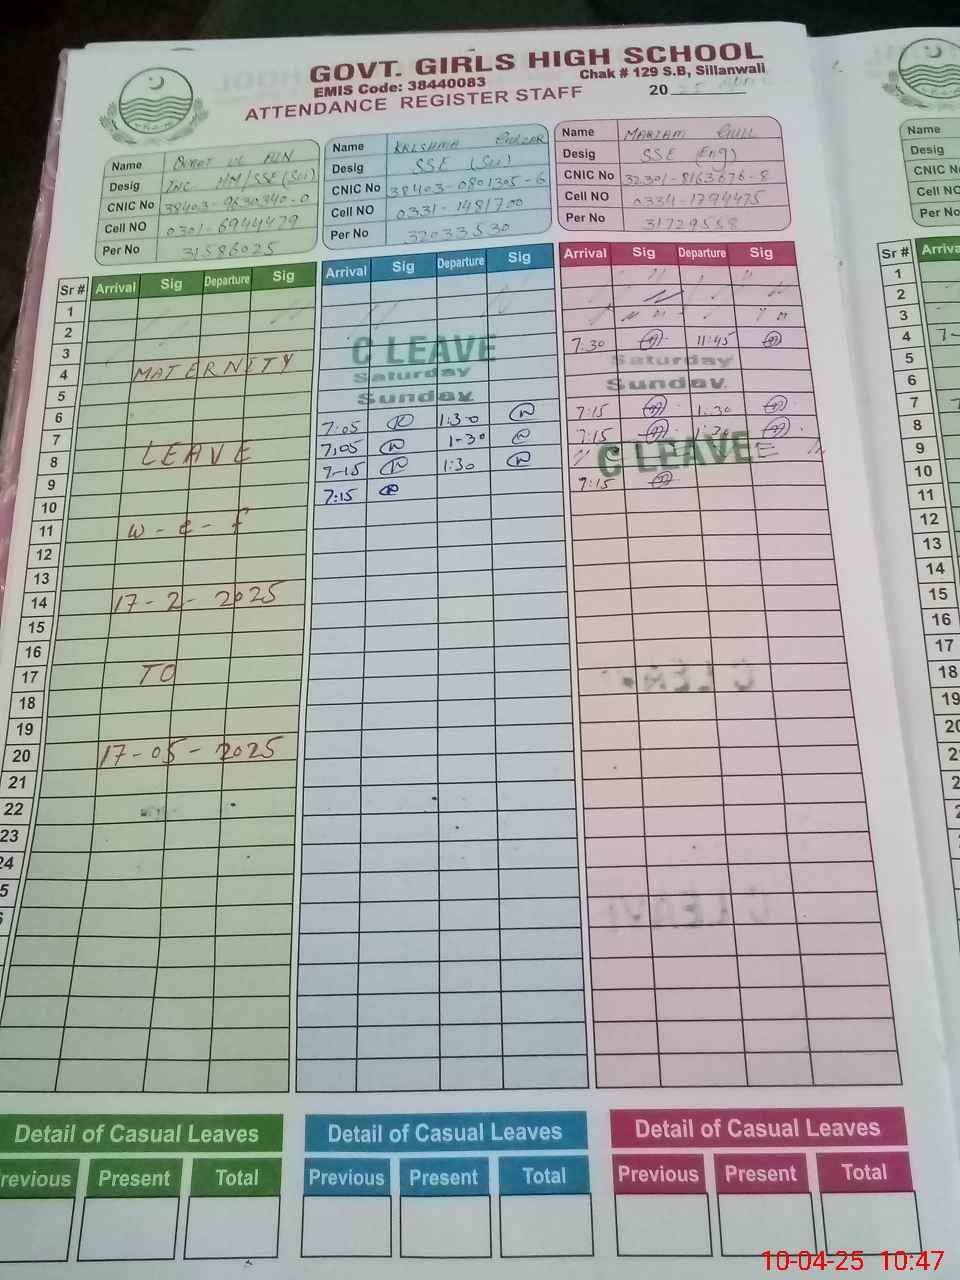 GOVT. GIRLS HIGH SCHOOL
EMIS Code: 38440083
Chak # 129 S.B, Sillanwali
ATTENDANCE REGISTER STAFF
20 25
Name
Desig INC HM/SSE (Sci)
CNIC No 38403-9630340-0
Cell NO 0301-6944479
Per No 31586025
Name
Desig SSE (Sci)
CNIC No 38403-0801305-6
Cell NO 0331-1481700
Per No 32033530
Name MARIAM GULL
Desig SSE (Eng)
CNIC No 32301-8163676-8
Cell NO 0334-1794475
Per No 31729558
Name
Desig
CNIC N
Cell NO
Per No
Sr # Arrival Sig Departure Sig Arrival Sig Departure Sig Arrival Sig Departure Sig Sr # Arriva
1 1
2 2
3 3
4 MATERNITY C LEAVE 7:30 11:45 4
5 Saturday Saturday 5
6 Sunday Sunday 6
7 7:05 1:30 7:15 1:30 7
8 LEAVE 7:05 1-30 7:15 1:30 8
9 7-15 1:30 C LEAVE 9
10 7:15 7:15 10
11 w-e-f 11
12 12
13 13
14 17-2-2025 14
15 15
16 16
17 TO 17
18 18
19 19
20 17-05-2025
21
22
23
24
Detail of Casual Leaves Detail of Casual Leaves Detail of Casual Leaves
revious Present Total Previous Present Total Previous Present Total
10-04-25 10:47